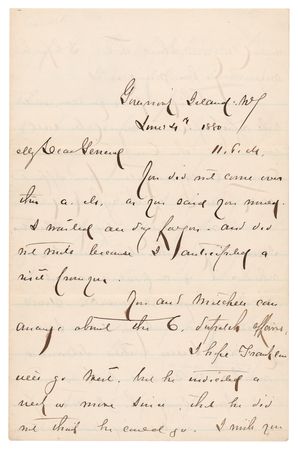 Governor's Island. NY
June 4th 1880
My Dear General 11. P. M.
You did not come over
this as you said you
I waited all day for you - and did
not write because I anticipated a
visit from you.
You and Mitchell can
arrange about the G. affairs,
I hope Franklin
will go West. but he indicated a
week or more since, that he did
not think he could go. I wish you